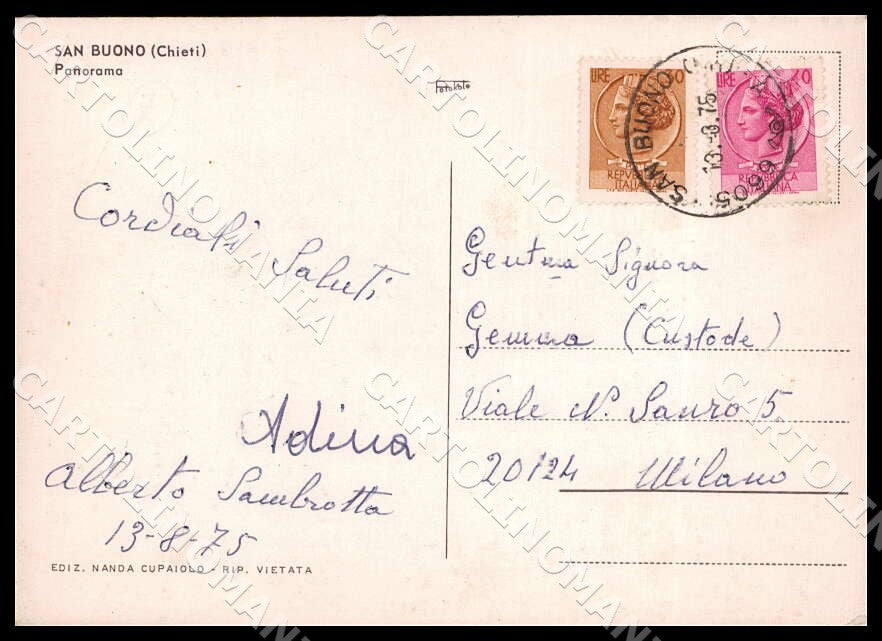 SAN BUONO (Chieti)
Panorama
Fotokolo
LIRE 50
REPVBBLICA
ITALIANA
LIRE
REPVBBLICA
ITALIANA
SAN BUONO
13.8.75
Cordiali Saluti
Adina
Alberto Sambrotta
13-8-75
EDIZ. NANDA CUPAIOLO - RIP. VIETATA
Gent.ma Signora
Gemma (Custode)
Viale N. Sauro 5
20124 Milano
CARTOLINOMANIA